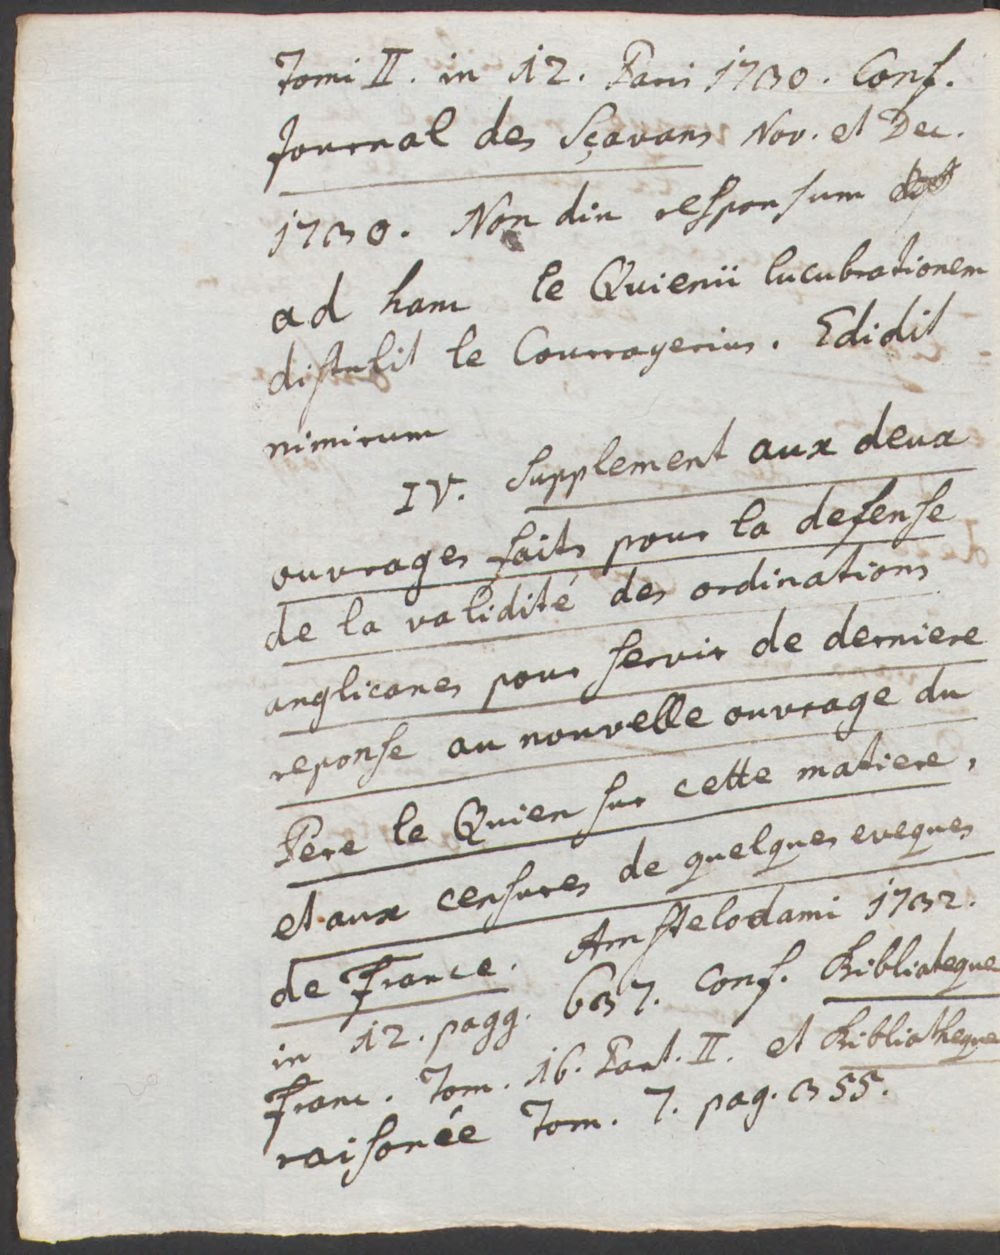 Tomi II. in 12. Paris 1730. Conf.
Journal des Sçavans Nov. et Dec.
1730. Non diu responsum
ad hanc le Quienii lucubrationem
distulit le Courrayerius. Edidit
nimirum
IV. Supplement aux deux
ouvrages faits pour la defense
de la validité des ordinations
anglicanes pour servir de derniere
reponse au nouvelle ouvrage du
Pere le Quien sur cette matiere,
et aux censures de quelques eveques
de France. Amstelodami 1732.
in 12. pagg. 637. Conf. Bibliateque
Franc. Tom. 16. Part. II. et Bibliatheque
raisonée Tom. 7. pag. 355.